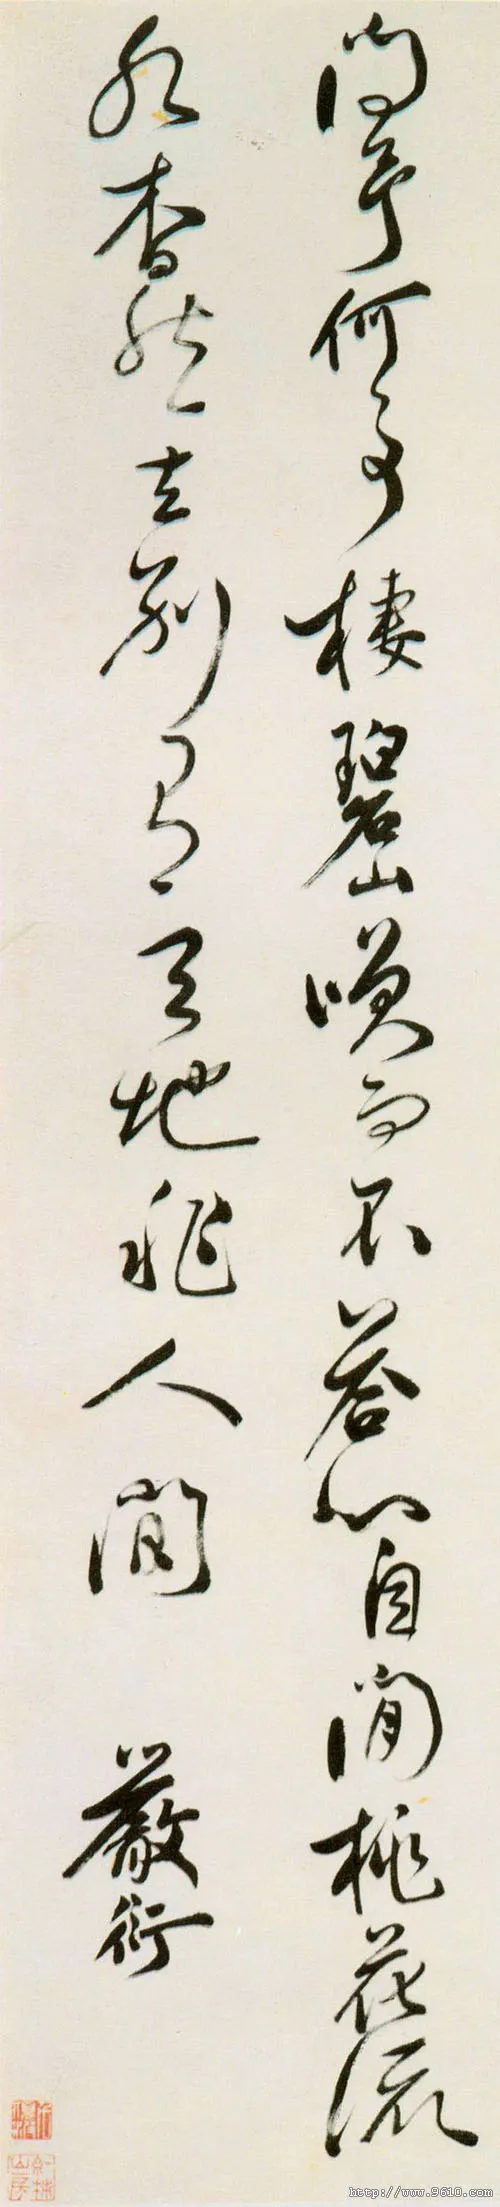 問予何事棲碧山咲而不荅心自閒桃花流
水杳然去別有天地非人間
嚴衍
http://www.9610.com